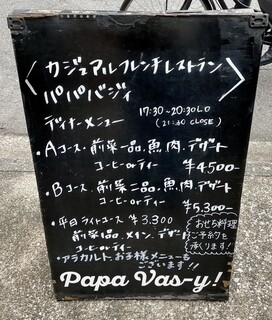 カジュアルフレンチレストラン
パパバジィ
ディナーメニュー 17:30~20:30L.O
(21:30 CLOSE)
・Aコース. 前菜一品.魚.肉.デザート
コーヒーorティー ¥4500-
・Bコース. 前菜二品.魚.肉.デザート
コーヒーorティー ¥5,300-
・平日ライトコース ¥3,300
前菜一品.メイン.デザート
コーヒーorティー
・アラカルト、お子様メニューも
ございます!!
おせち料理
ご予約も
承ります!
Papa Vas-y!